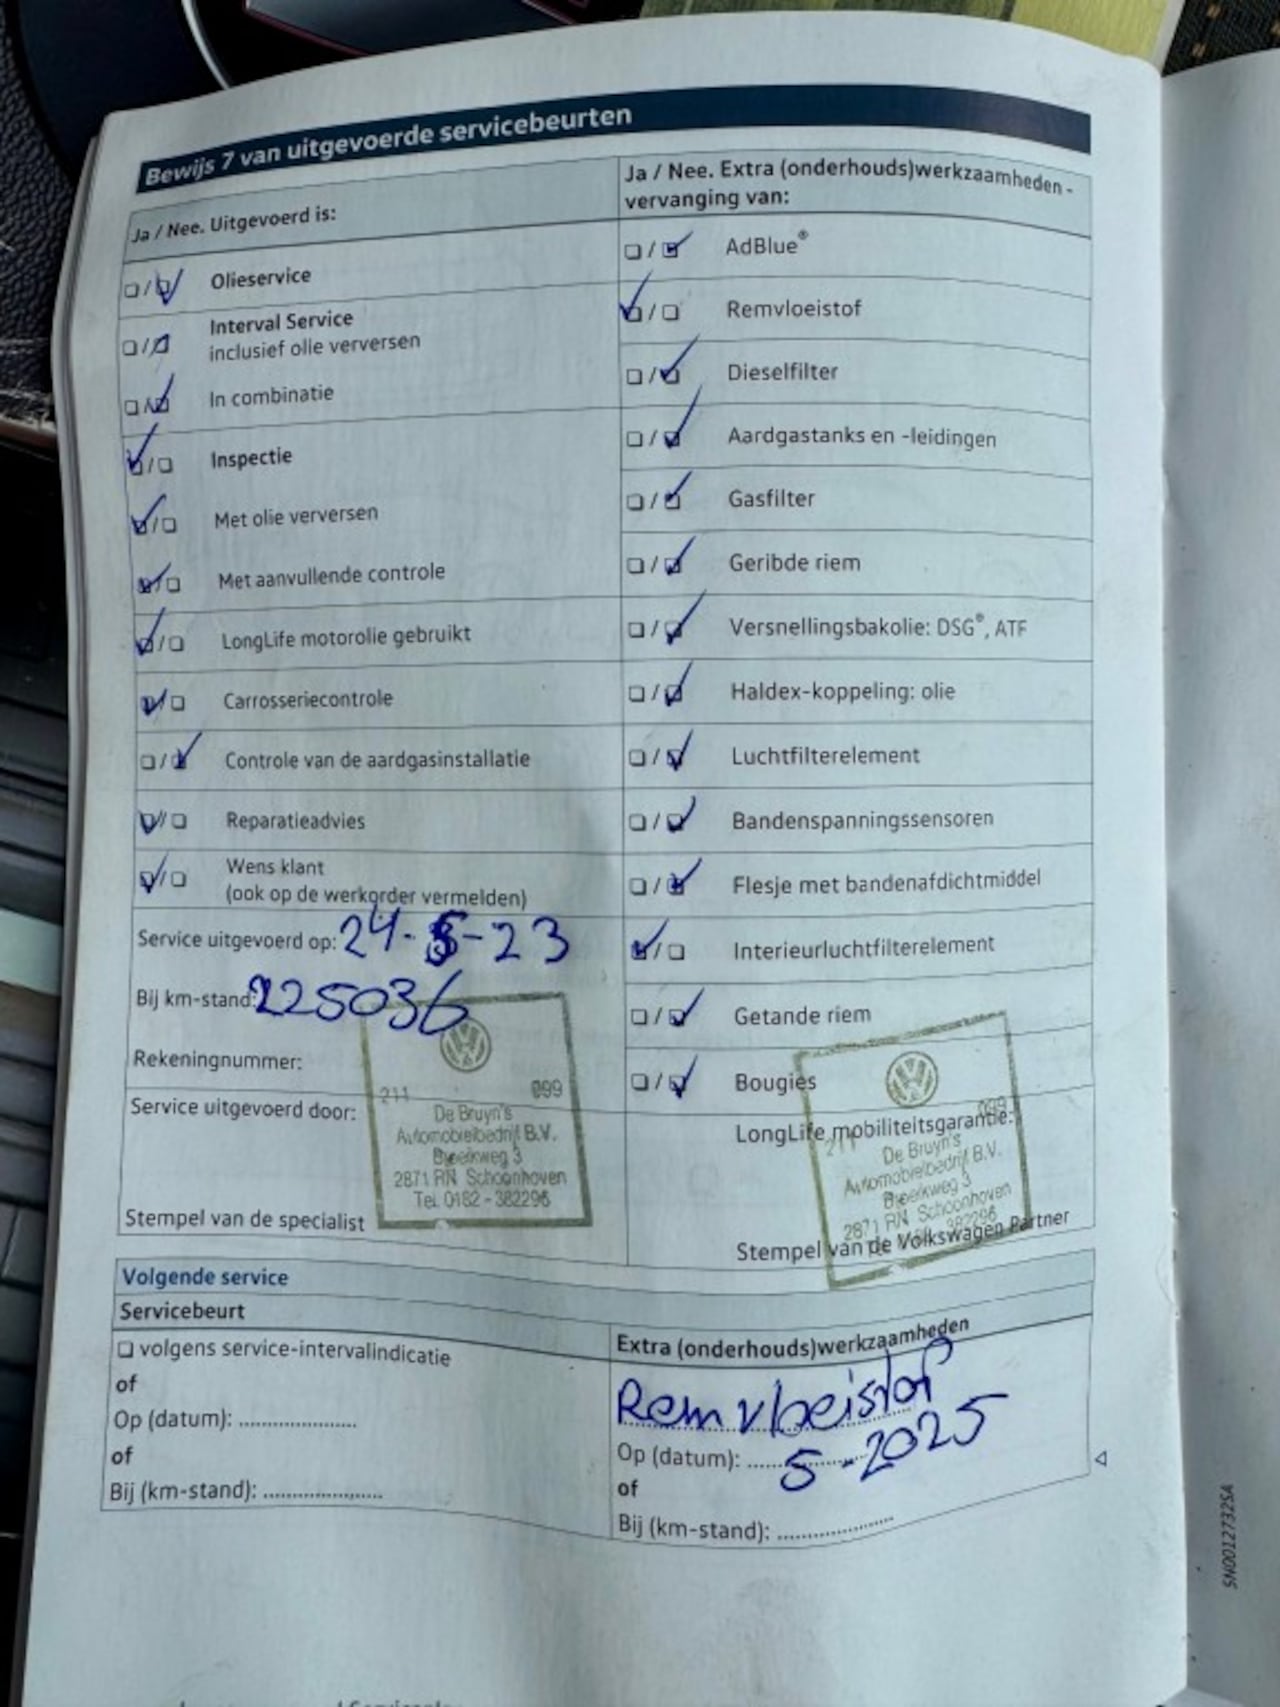 Bewijs 7 van uitgevoerde servicebeurten
Ja / Nee. Uitgevoerd is:
Olieservice
Interval Service
inclusief olie verversen
In combinatie
Inspectie
Met olie verversen
Met aanvullende controle
LongLife motorolie gebruikt
Carrosseriecontrole
Controle van de aardgasinstallatie
Reparatieadvies
Wens klant
(ook op de werkorder vermelden)
Service uitgevoerd op: 24-5-23
Bij km-stand: 225036
Rekeningnummer:
Service uitgevoerd door:
211 099
De Bruyn's
Automobielbedrijf B.V.
Breeikweg 3
2871 RN Schoonhoven
Tel. 0182-382296
Stempel van de specialist
Ja / Nee. Extra (onderhouds)werkzaamheden -
vervanging van:
AdBlue®
Remvloeistof
Dieselfilter
Aardgastanks en -leidingen
Gasfilter
Geribde riem
Versnellingsbakolie: DSG®, ATF
Haldex-koppeling: olie
Luchtfilterelement
Bandenspanningssensoren
Flesje met bandenafdichtmiddel
Interieurluchtfilterelement
Getande riem
Bougies
LongLife mobiliteitsgarantie:
211 099
De Bruyn's
Automobielbedrijf B.V.
Breeikweg 3
2871 RN Schoonhoven
382296
Stempel van de Volkswagen Partner
Volgende service
Servicebeurt
volgens service-intervalindicatie
of
Op (datum): ....................
of
Bij (km-stand): ....................
Extra (onderhouds)werkzaamheden
Remvloeistof
Op (datum): 5-2025
of
Bij (km-stand): ....................
SN0012732SA